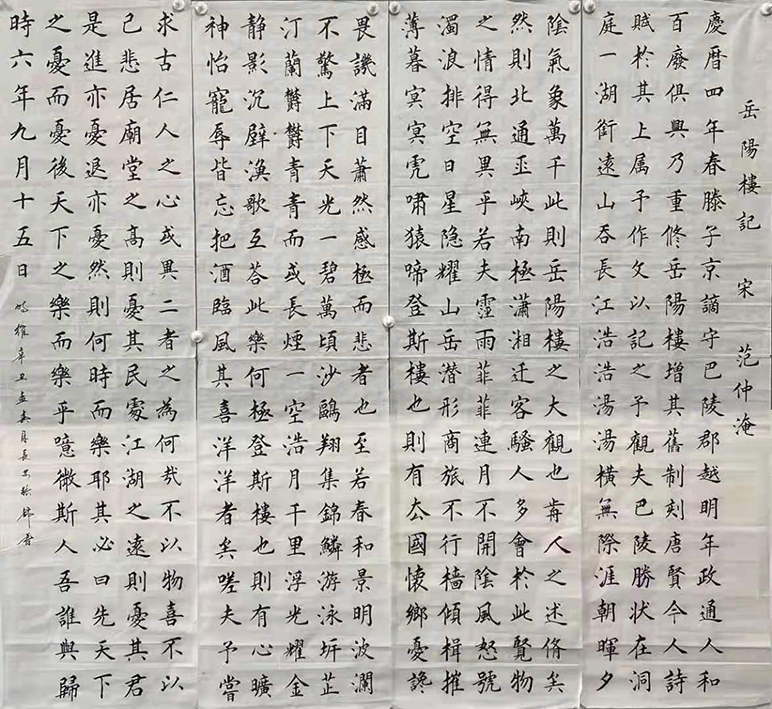 岳陽樓記 宋 范仲淹
慶曆四年春滕子京謫守巴陵郡越明年政通人和
百廢俱興乃重修岳陽樓增其舊制刻唐賢今人詩
賦於其上属予作文以記之予觀夫巴陵勝状在洞
庭一湖銜遠山吞長江浩浩湯湯橫無際涯朝暉夕
陰氣象萬千此則岳陽樓之大觀也前人之述俻矣
然則北通巫峽南極瀟湘迁客騷人多會於此覧物
之情得無異乎若夫霪雨菲菲連月不開陰風怒號
濁浪排空日星隐耀山岳潜形商旅不行檣傾楫摧
薄暮冥冥虎嘯猿啼登斯樓也則有去國懐鄉憂讒
畏譏滿目蕭然感極而悲者也至若春和景明波瀾
不驚上下天光一碧萬頃沙鷗翔集錦鱗游泳芷
汀蘭欝欝青青而或長煙一空浩月千里浮光耀金
静影沉壁漁歌互荅此樂何極登斯樓也則有心曠
神怡寵辱皆忘把酒臨風其喜洋洋者矣嗟夫予嘗
求古仁人之心或異二者之為何哉不以物喜不以
己悲居廟堂之髙則憂其民處江湖之遠則憂其君
是進亦憂退亦憂然則何時而樂耶其必曰先天下
之憂而憂後天下之樂而樂乎噫微斯人吾誰與歸
時六年九月十五日 辛丑